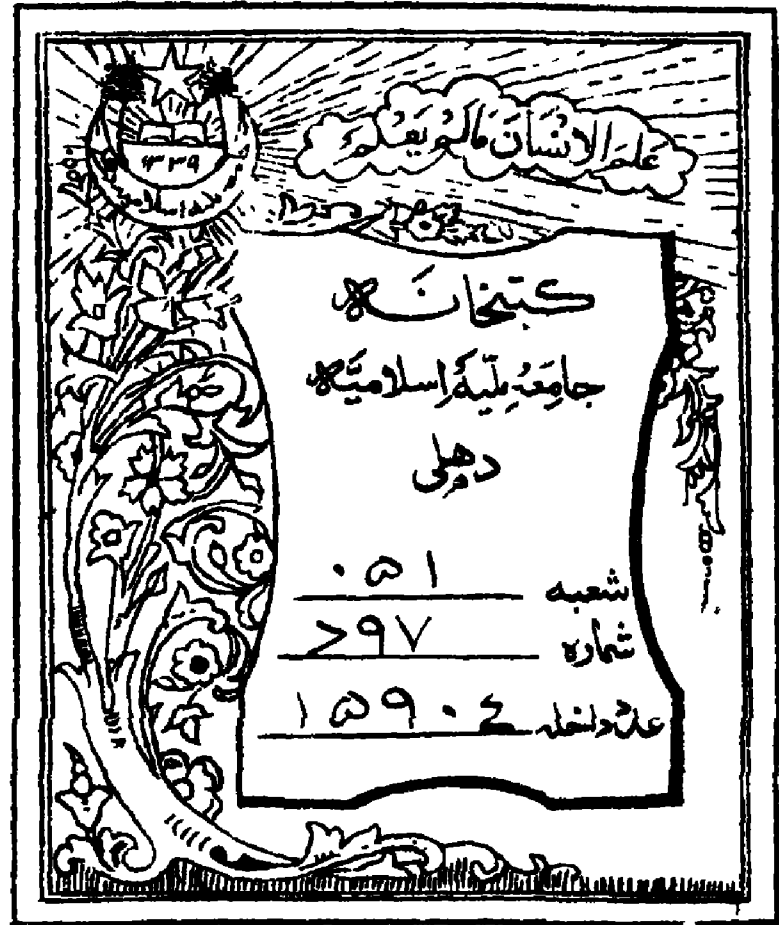 علم الانسان مالم يعلم
۱۳۳۹
جامعہ ملیہ اسلامیہ
کتبخانہ
جامعہ ملیہ اسلامیہ
دہلی
شعبہ ۰۵۱
شمارہ
عدد داخلہ ۱۵۹۰۴